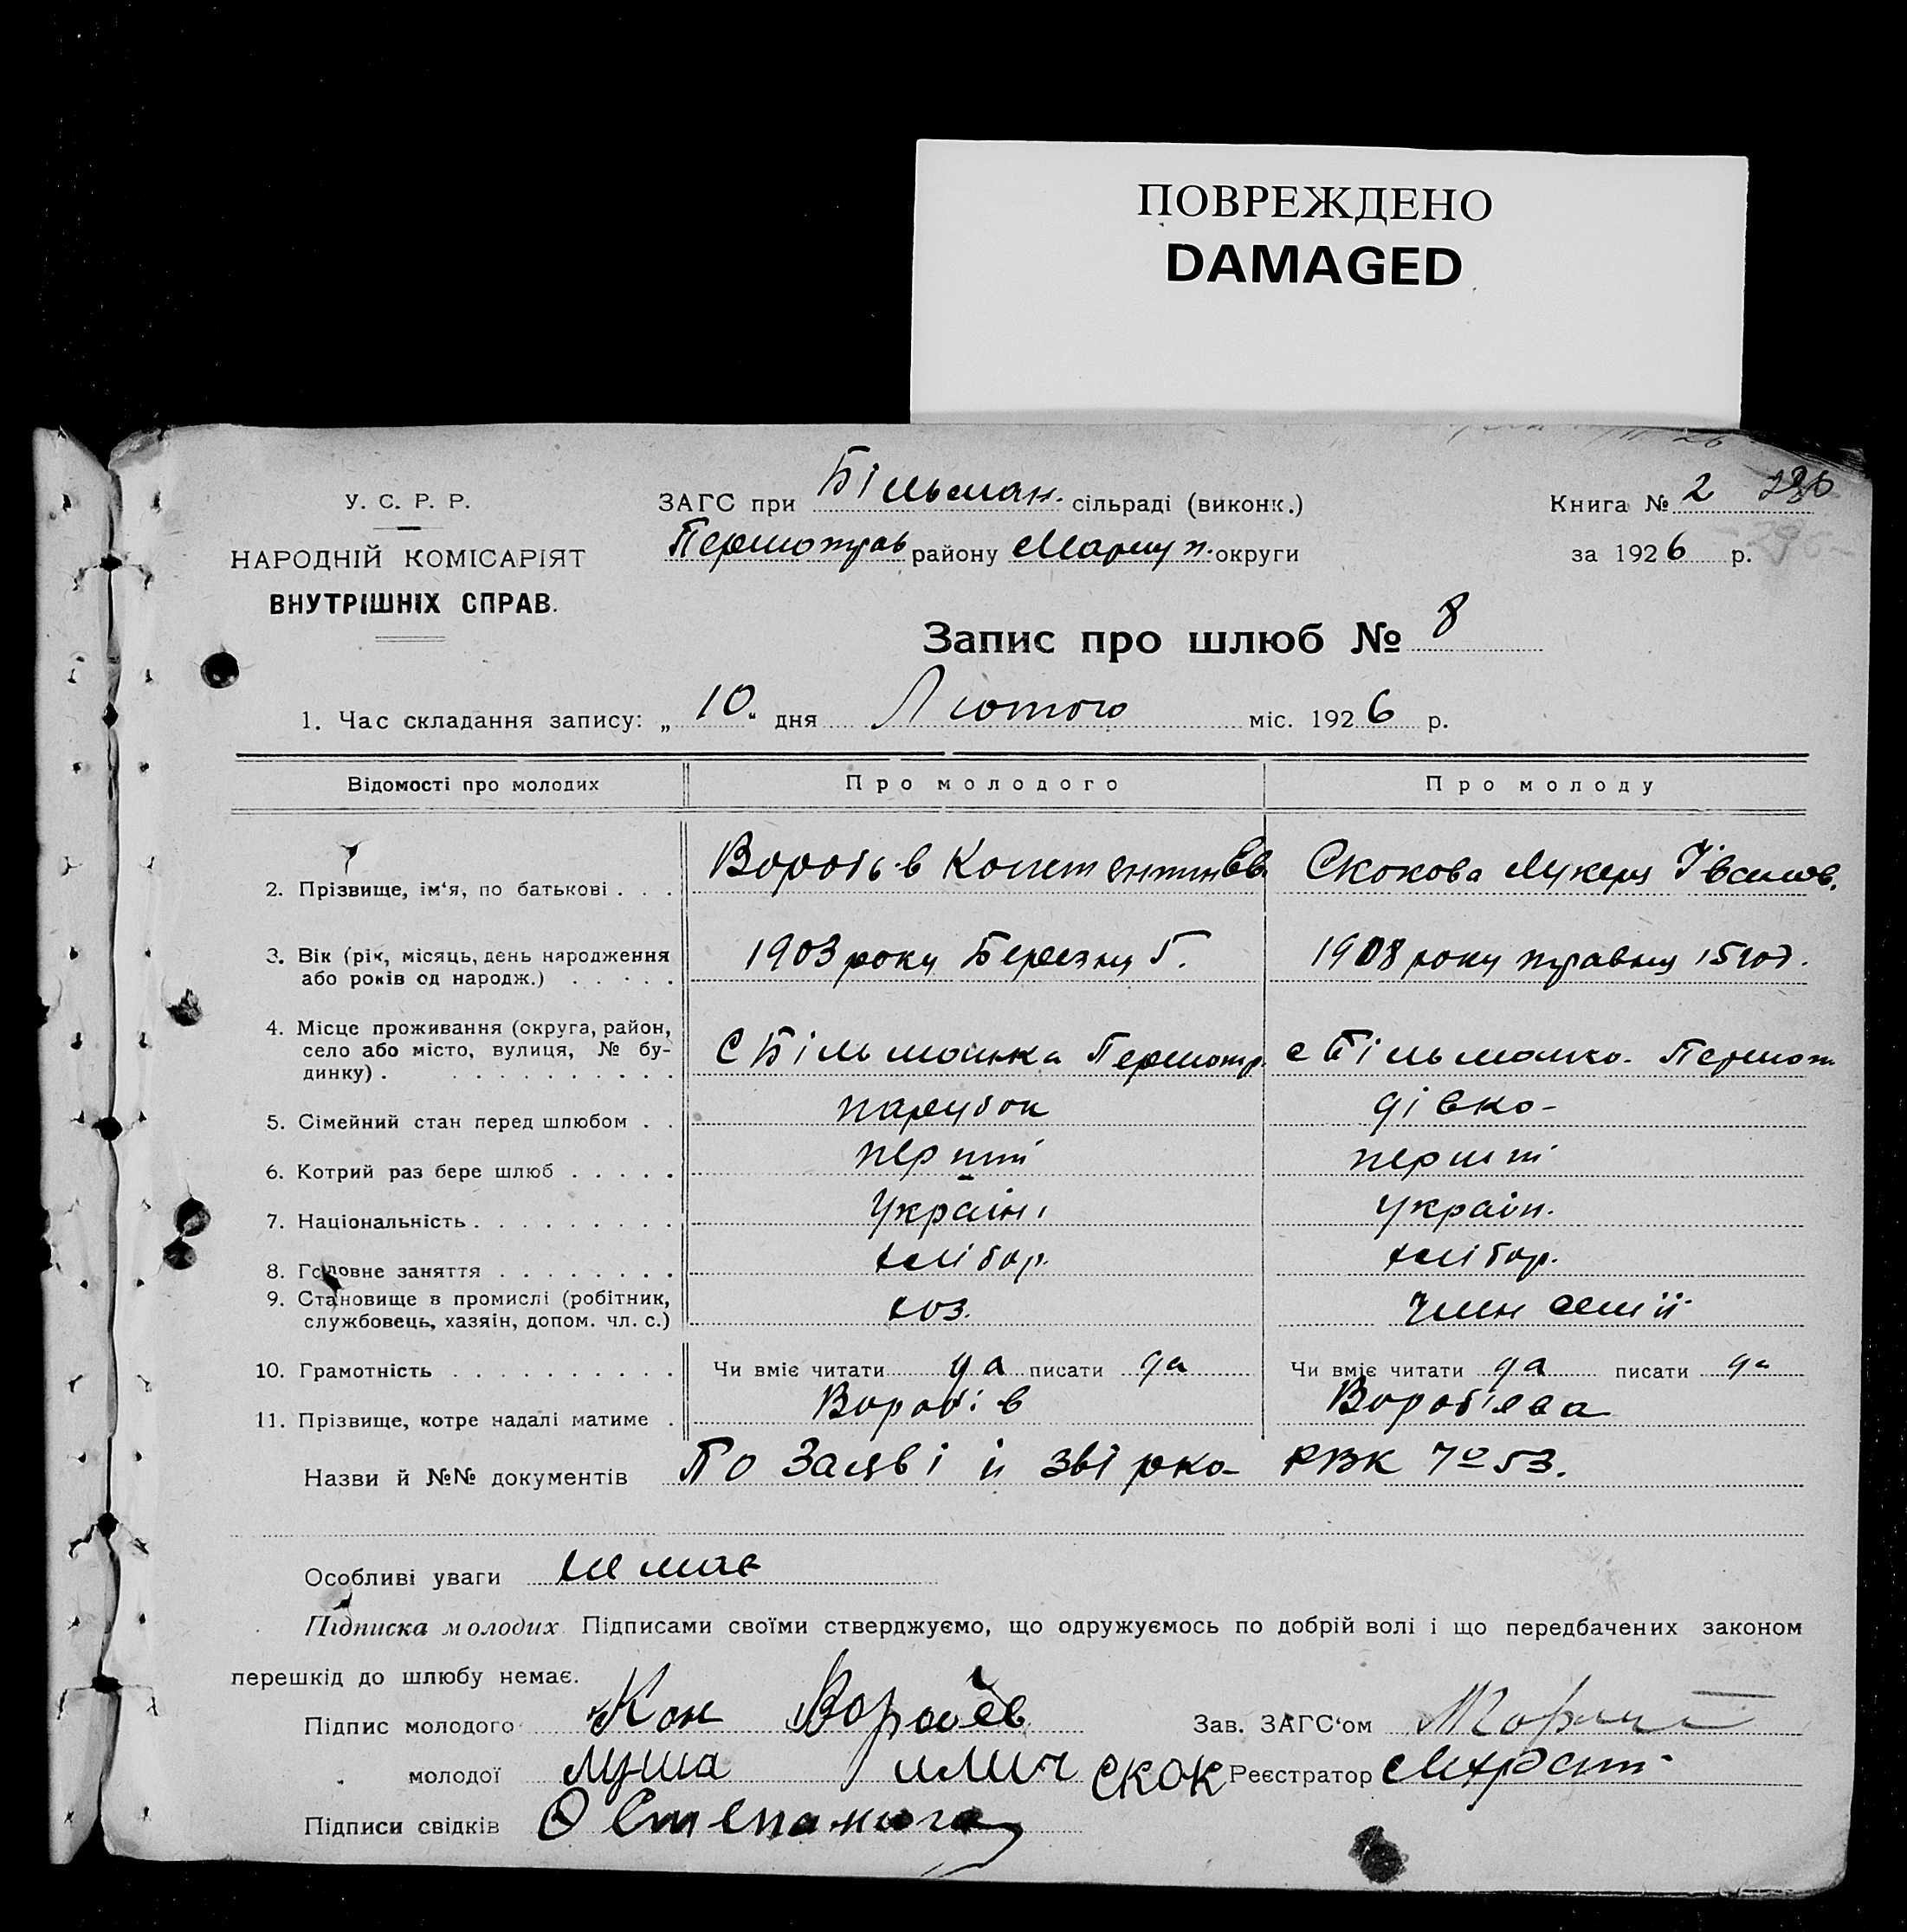 ПОВРЕЖДЕНО
DAMAGED
У. С. Р. Р.
НАРОДНІЙ КОМІСАРІЯТ
ВНУТРІШНІХ СПРАВ.
ЗАГС при Більман. сільраді (виконк.)
Першотрав району Маріуп. округи
Книга № 2
за 1926 р.
Запис про шлюб № 8
1. Час складання запису: „ 10 " дня Лютого міс. 1926 р.
Відомості про молодих Про молодого Про молоду
2. Прізвище, ім'я, по батькові . . . Воробьв Констентин Єв. Скокова Лукеря Івапов.
3. Вік (рік, місяць, день народження 1903 року Березня 5. 1908 року травня 15
або років од народж.) . . . . .
4. Місце проживання (округа, район,
село або місто, вулиця, № бу- С Більманка Першотр. с Більманка Першот
динку) . . . . . . . . . . .
5. Сімейний стан перед шлюбом . . парубок дівка
6. Котрий раз бере шлюб . . . . . перший перший
7. Національність . . . . . . . . . україн. україн.
8. Головне заняття . . . . . . . . хлібор. хлібор.
9. Становище в промислі (робітник,
службовець, хазяін, допом. чл. с.) хоз. член семіі
10. Грамотність . . . . . . . . . . Чи вміє читати да писати да Чи вміє читати да писати да
11. Прізвище, котре надалі матиме . Воробів Воробієва
Назви й №№ документів По Заяві й звірка РВК № 53.
Особливі уваги немає
Підписка молодих. Підписами своїми стверджуємо, що одружуємось по добрій волі і що передбачених законом
перешкід до шлюбу немає.
Підпис молодого Кон Воробєв Зав. ЗАГС'ом
" молодої Луша СКОК Реєстратор
Підписи свідків О